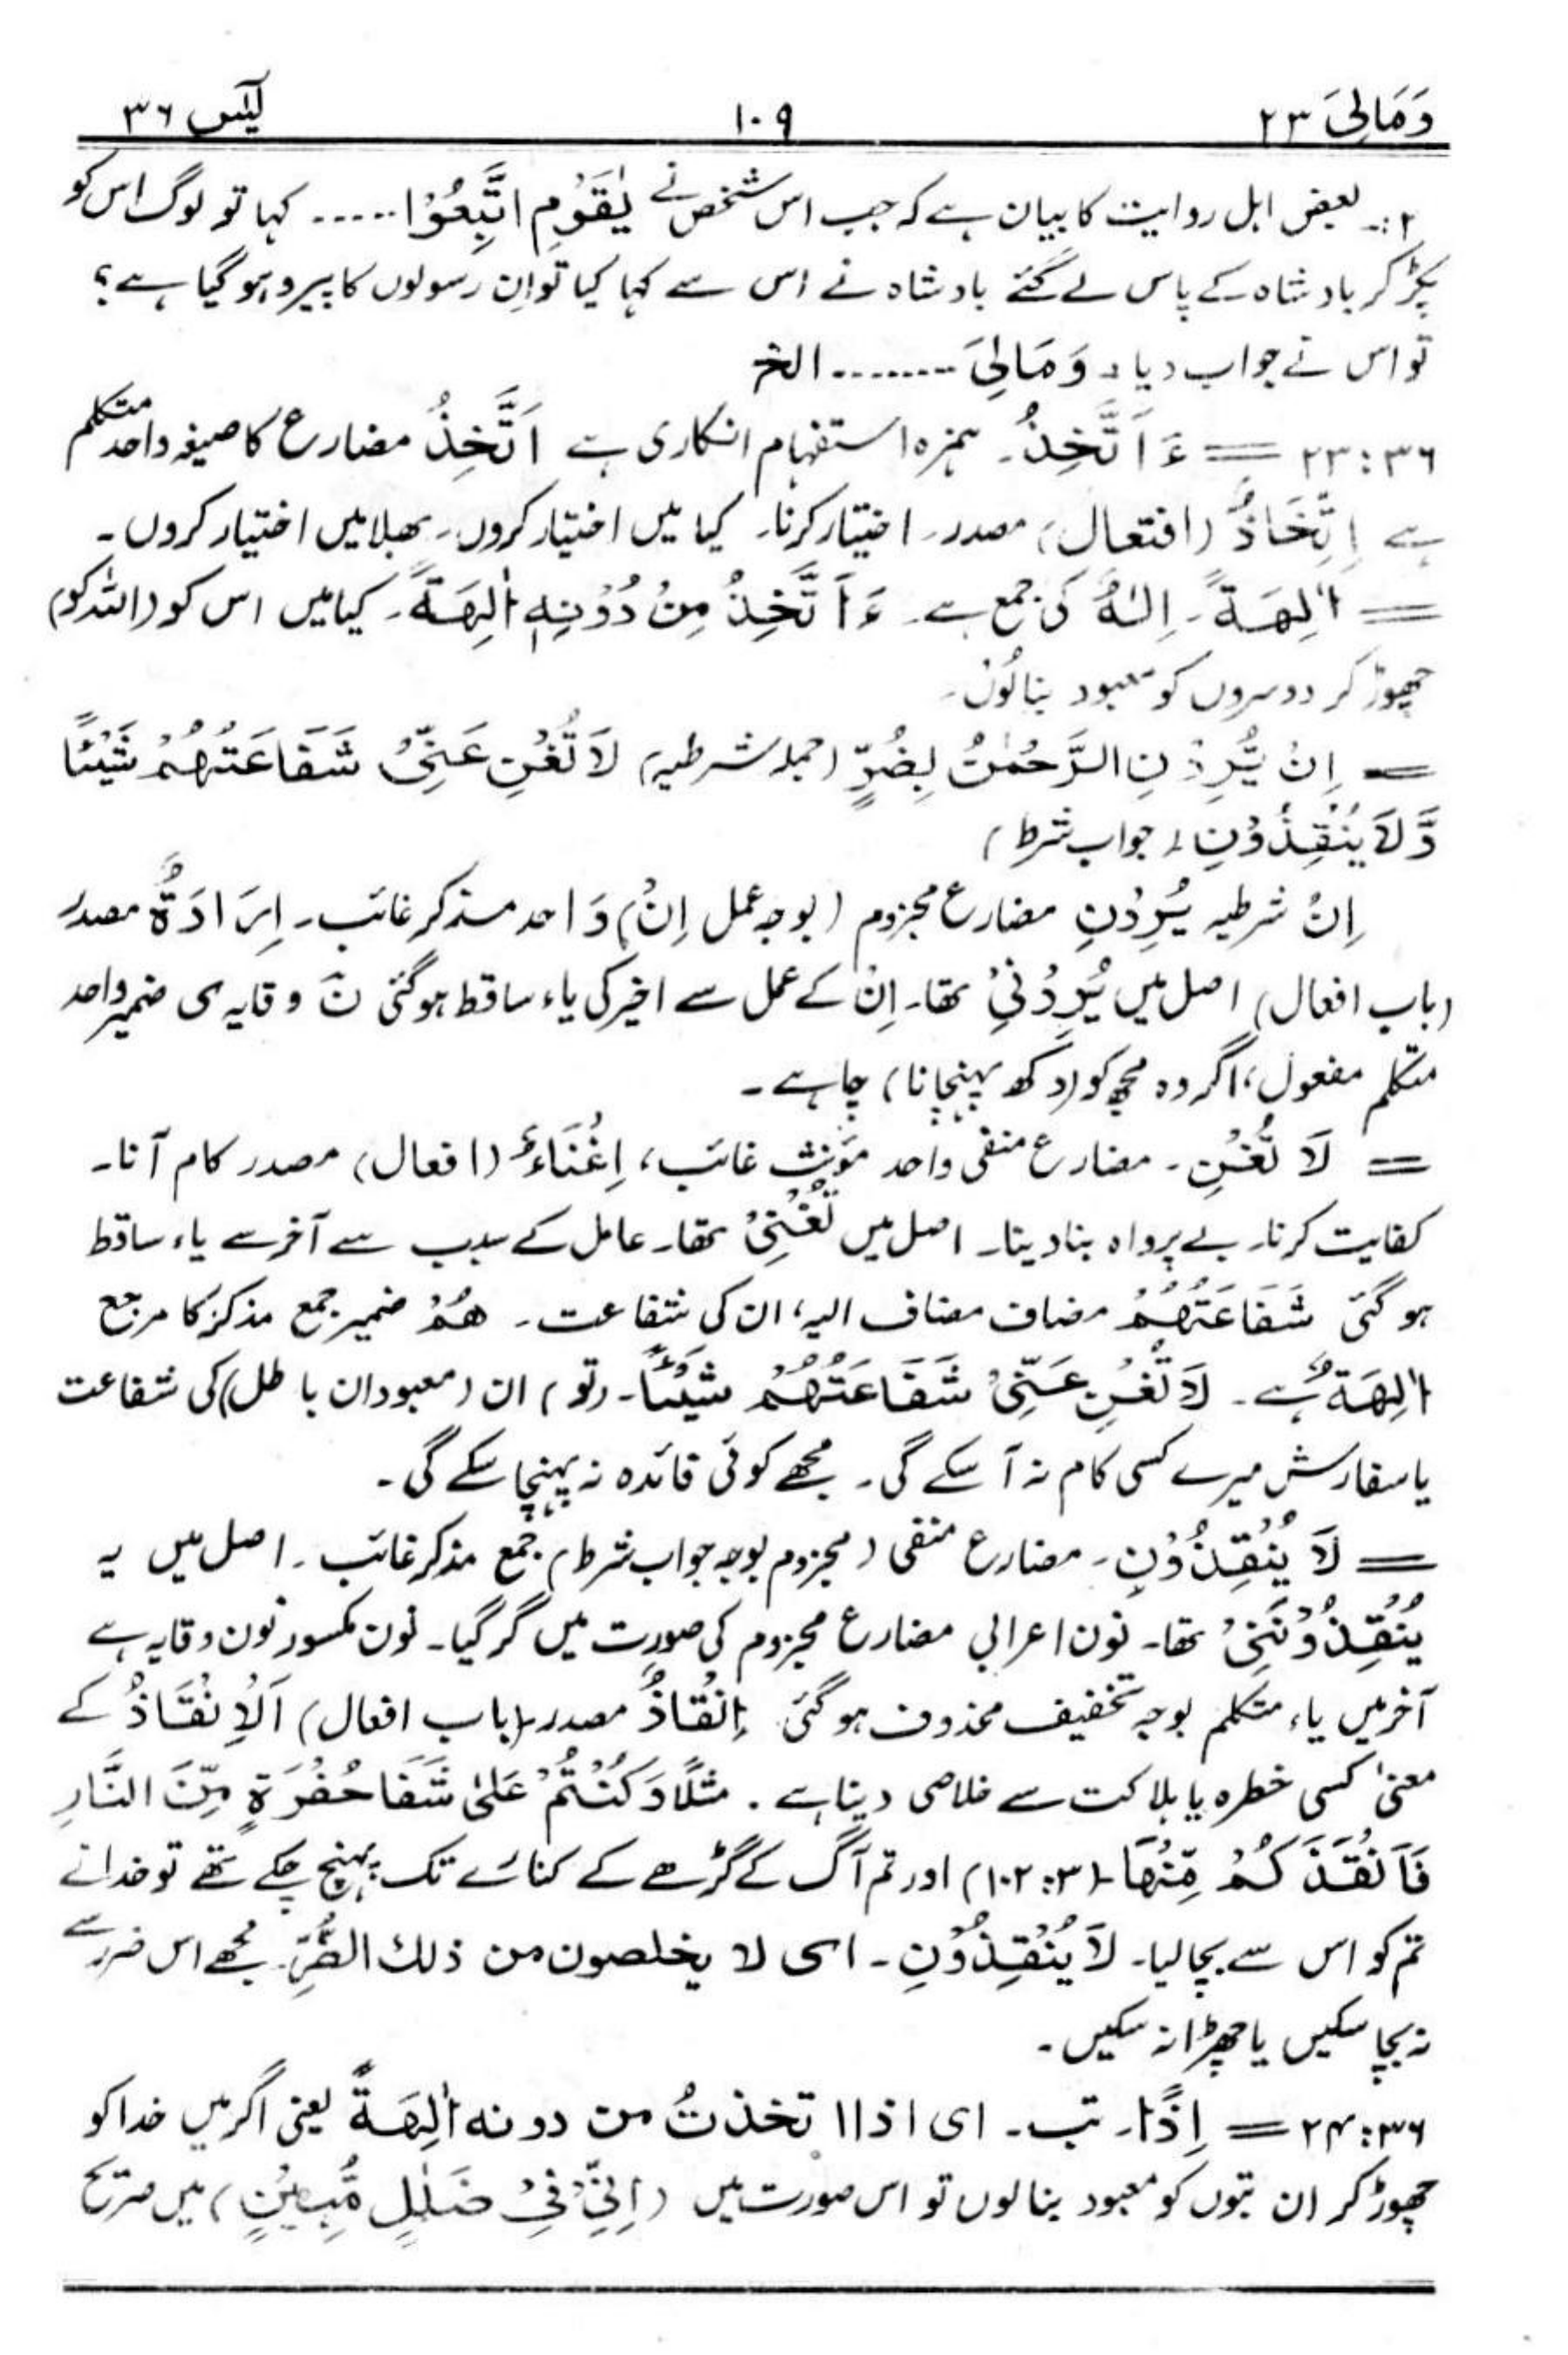 وَمَالِیَ ۲۳ ۱۰۹ یٰسٓ ۳۶
۲:۔ بعض اہل روایت کا بیان ہے کہ جب اس شخص نے یٰقَوْمِ اتَّبِعُوْا ..... کہا تو لوگ اس کو
پکڑ کر بادشاہ کے پاس لے گئے بادشاہ نے اس سے کہا کیا تو ان رسولوں کا پیرو ہو گیا ہے؟
تو اس نے جواب دیا۔ وَمَالِیَ ........ الخ
۲۳:۳۶ = ءَاَتَّخِذُ۔ ہمزہ استفہام انکاری ہے اَتَّخِذُ مضارع کا صیغہ واحد متکلم
ہے اِتِّخَاذٌ (افتعال) مصدر۔ اختیار کرنا۔ کیا میں اختیار کروں۔ بھلا میں اختیار کروں۔
= اٰلِهَةً۔ اِلٰهٌ کی جمع ہے۔ ءَاَتَّخِذُ مِنْ دُوْنِهٖ اٰلِهَةً۔ کیا میں اس کو (اللہ کو)
چھوڑ کر دوسروں کو معبود بنالُوں۔
= اِنْ یُّرِدْنِ الرَّحْمٰنُ بِضُرٍّ (جملہ شرطیہ) لَا تُغْنِ عَنِّیْ شَفَاعَتُهُمْ شَیْئًا
وَّلَا یُنْقِذُوْنِ (جواب شرط)
اِنْ شرطیہ یُرِدْنِ مضارع مجزوم (بوجہ عمل اِنْ) وَاحد مذکر غائب۔ اِرَادَةٌ مصدر
(باب افعال) اصل میں یُرِدْنِیْ تھا۔ اِنْ کے عمل سے اخیر کی یاء ساقط ہو گئی نَ وقایہ ی ضمیر واحد
متکلم مفعول، اگر وہ مجھ کو (دکھ پہنچانا) چاہے۔
= لَا تُغْنِ۔ مضارع منفی واحد مؤنث غائب، اِغْنَاءٌ (افعال) مصدر کام آنا۔
کفایت کرنا۔ بے پرواہ بنا دینا۔ اصل میں تُغْنِیْ تھا۔ عامل کے سبب سے آخر سے یاء ساقط
ہو گئی شَفَاعَتُهُمْ مضاف مضاف الیہ، ان کی شفاعت۔ هُمْ ضمیر جمع مذکر کا مرجع
اٰلِهَةٌ ہے۔ لَا تُغْنِ عَنِّیْ شَفَاعَتُهُمْ شَیْئًا۔ (تو) ان (معبودان باطل) کی شفاعت
یا سفارش میرے کسی کام نہ آ سکے گی۔ مجھے کوئی فائدہ نہ پہنچا سکے گی۔
= لَا یُنْقِذُوْنِ۔ مضارع منفی (مجزوم بوجہ جواب شرط) جمع مذکر غائب۔ اصل میں یہ
یُنْقِذُوْنَنِیْ تھا۔ نون اعرابی مضارع مجزوم کی صورت میں گر گیا۔ نون مکسور نون وقایہ ہے
آخر میں یاء متکلم بوجہ تخفیف محذوف ہو گئی۔ اِنْقَاذٌ مصدر (باب افعال) اَلْاِنْقَاذُ کے
معنیٰ کسی خطرہ یا ہلاکت سے خلاصی دینا ہے۔ مثلًا وَكُنْتُمْ عَلٰی شَفَا حُفْرَةٍ مِّنَ النَّارِ
فَاَنْقَذَكُمْ مِّنْهَا۔ (۱۰۲:۳) اور تم آگ کے گڑھے کے کنارے تک پہنچ چکے تھے تو خدا نے
تم کو اس سے بچا لیا۔ لَا یُنْقِذُوْنِ۔ ای لا یخلصون من ذلك الضُّرِّ۔ مجھے اس ضرر سے
نہ بچا سکیں یا چھڑا نہ سکیں۔
۲۴:۳۶ = اِذًا۔ تب۔ ای اذا اتخذتُ من دونه اٰلِهَةً یعنی اگر میں خدا کو
چھوڑ کر ان بتوں کو معبود بنالوں تو اس صورت میں (اِنِّیْ فِیْ ضَلٰلٍ مُّبِیْنٍ) میں صریح